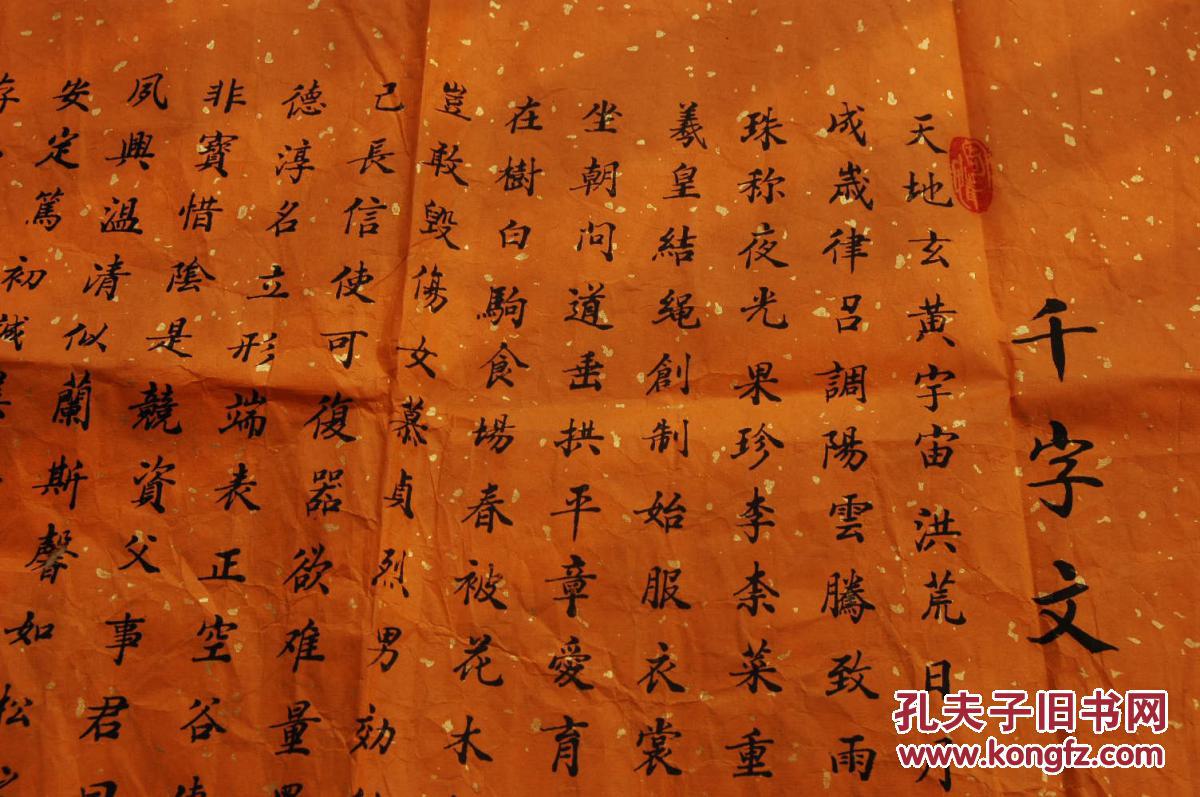 千字文
天地玄黃宇宙洪荒日月
成歲律呂調陽雲騰致雨
珠称夜光果珍李柰菜重
羲皇結繩創制始服衣裳
坐朝問道垂拱平章愛育
在樹白駒食場春被花木
豈敢毀傷女慕貞烈男効
己長信使可復器欲难量
德淳名立形端表正空谷
非寶惜陰是競資父事君
夙興溫清似蘭斯馨如松
安定篤初誠
孔夫子旧书网
www.kongfz.com